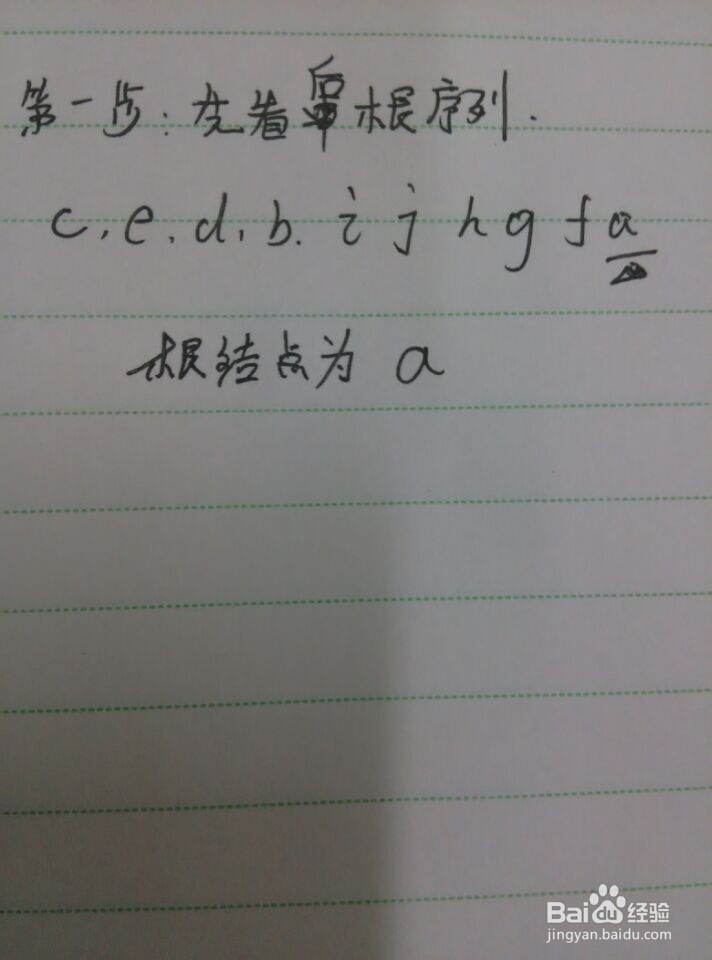 第一步:先看后根序列.
c,e,d,b.i j h g f a
根结点为 a
Baidu经验
jingyan.baidu.com